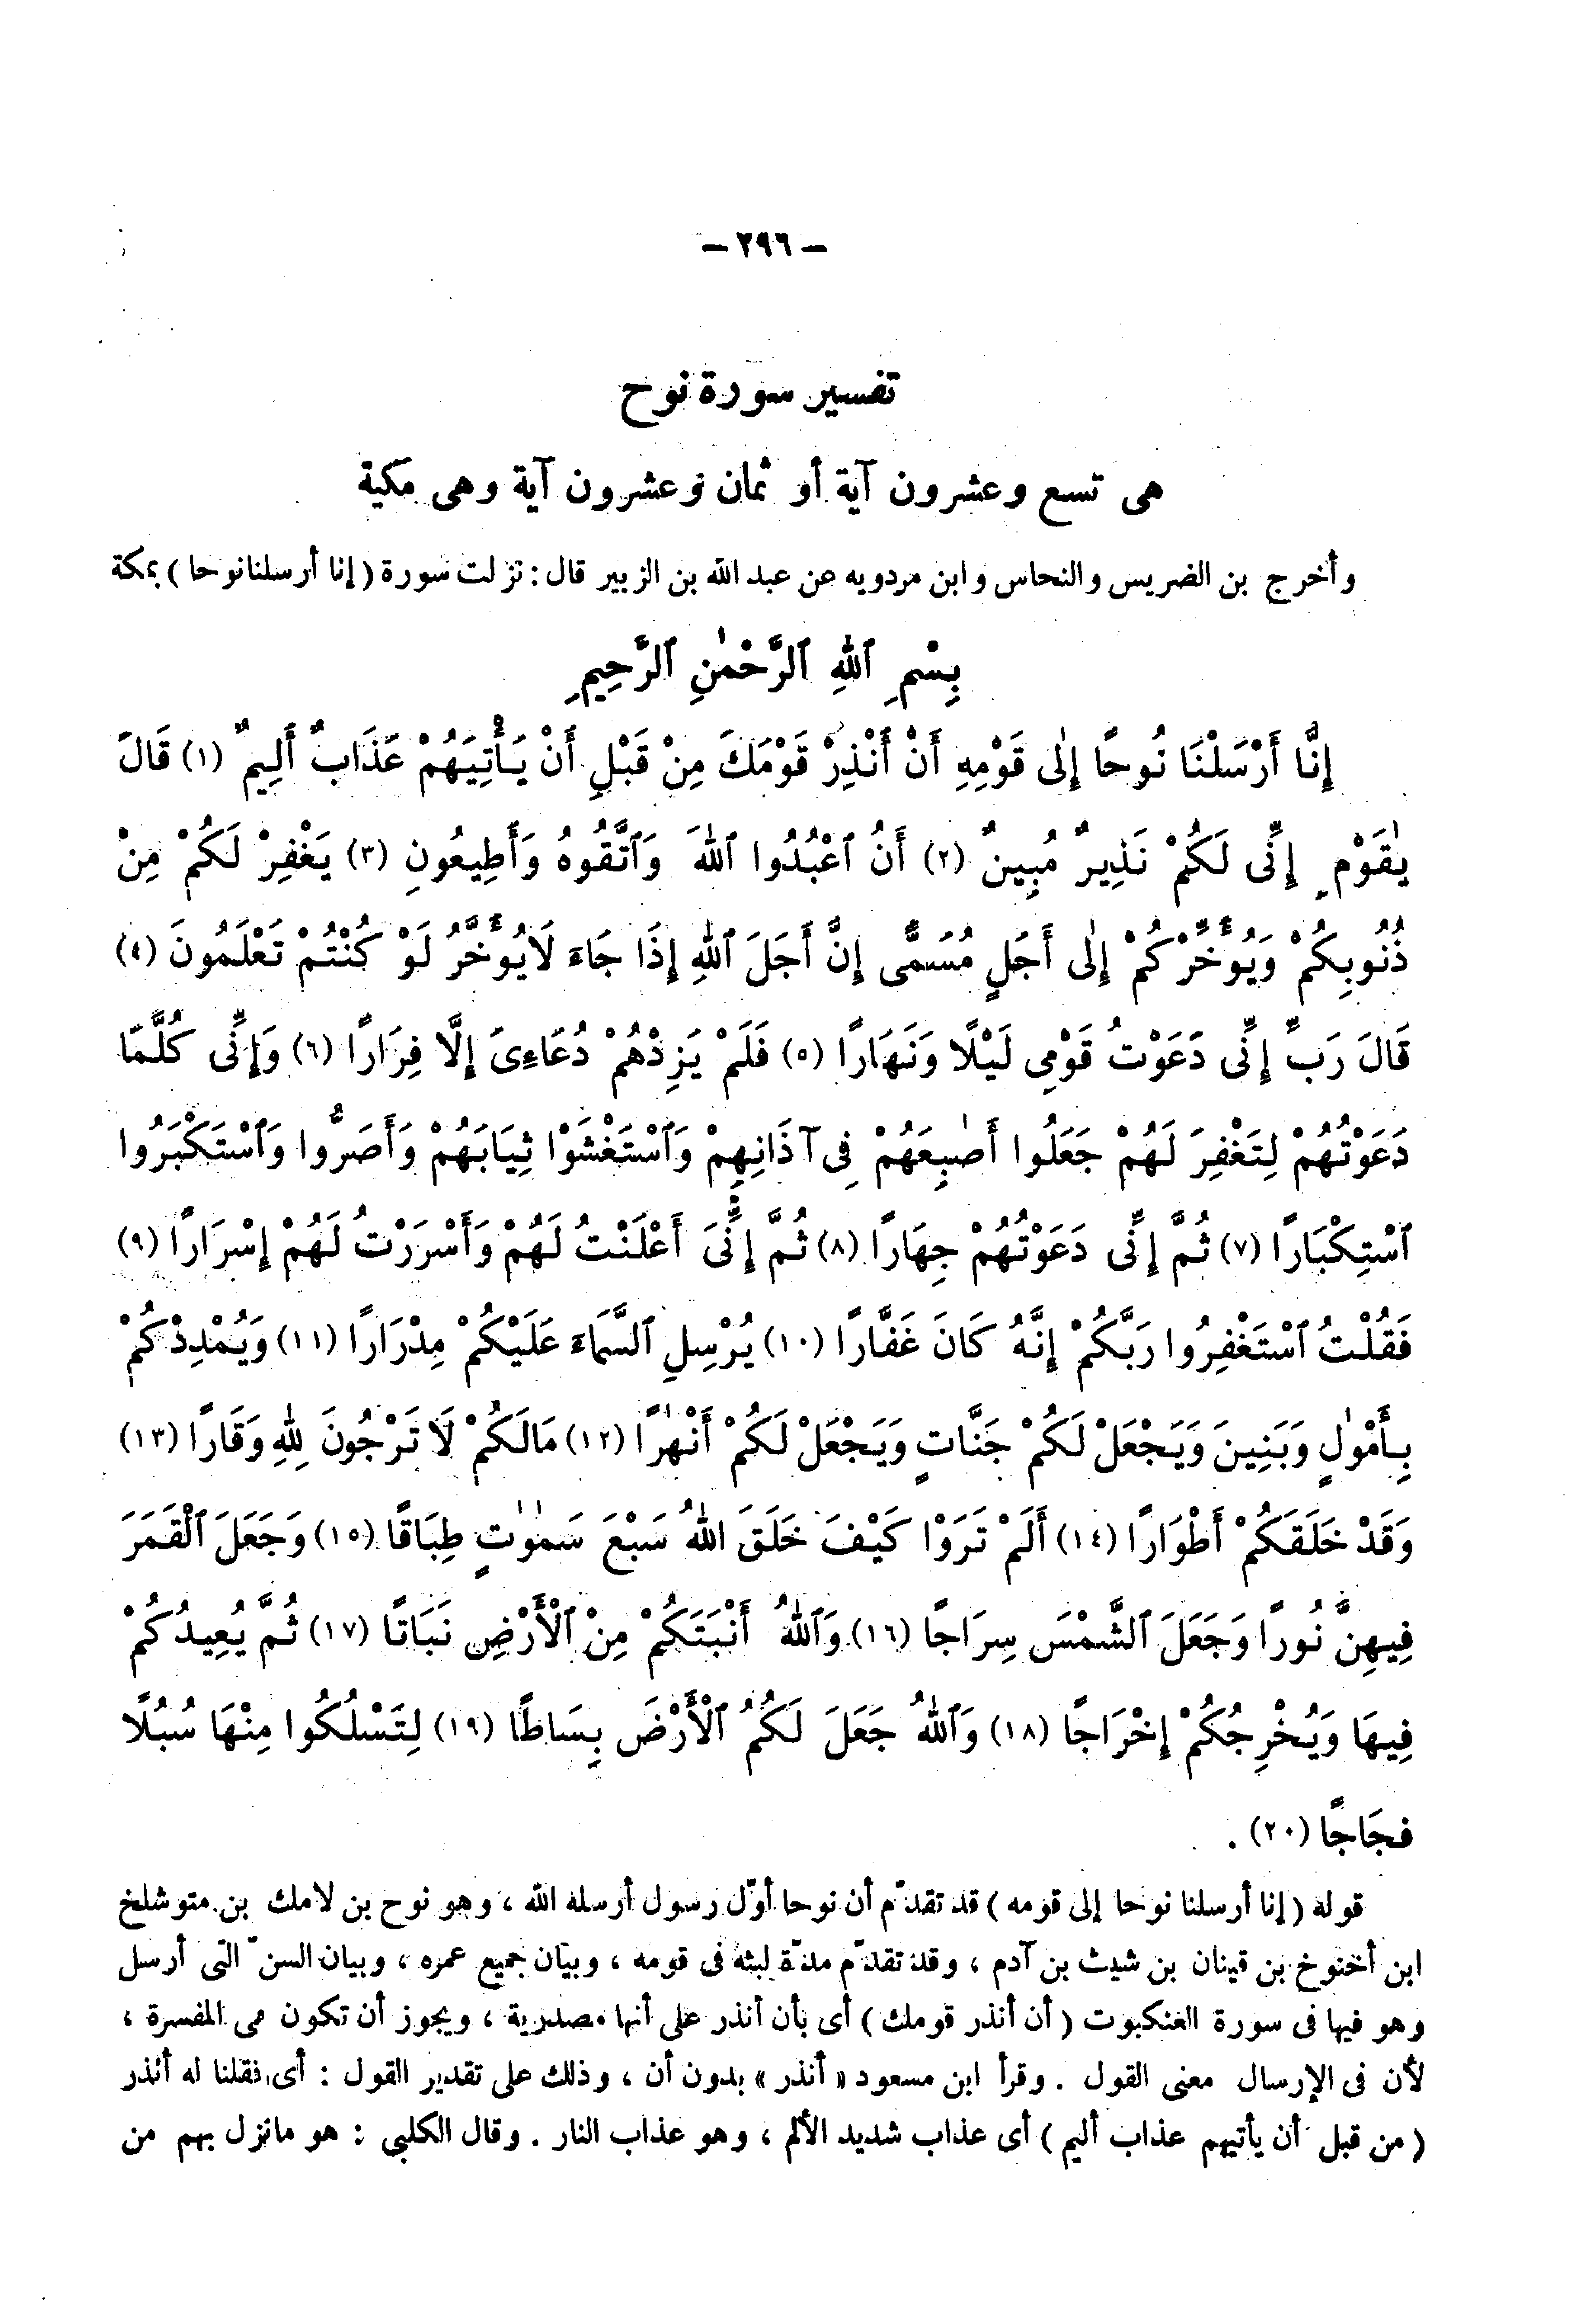 — ٢٩٦ —
تفسير سورة نوح
هى تسع وعشرون آية أو ثمان وعشرون آية وهى مكية
وأخرج بن الضريس والنحاس وابن مردويه عن عبد الله بن الزبير قال : نزلت سورة ( إنا أرسلنا نوحا ) بمكة
بِسْمِ ٱللهِ ٱلرَّحْمٰنِ ٱلرَّحِيمِ
إِنَّا أَرْسَلْنَا نُوحًا إِلٰى قَوْمِهِ أَنْ أَنْذِرْ قَوْمَكَ مِنْ قَبْلِ أَنْ يَأْتِيَهُمْ عَذَابٌ أَلِيمٌ (١) قَالَ
يٰقَوْمِ إِنِّى لَكُمْ نَذِيرٌ مُبِينٌ (٢) أَنُ ٱعْبُدُوا ٱللهَ وَٱتَّقُوهُ وَأَطِيعُونِ (٣) يَغْفِرْ لَكُمْ مِنْ
ذُنُوبِكُمْ وَيُؤَخِّرْكُمْ إِلٰى أَجَلٍ مُسَمًّى إِنَّ أَجَلَ ٱللهِ إِذَا جَاءَ لَا يُؤَخَّرُ لَوْ كُنْتُمْ تَعْلَمُونَ (٤)
قَالَ رَبِّ إِنِّى دَعَوْتُ قَوْمِى لَيْلًا وَنَهَارًا (٥) فَلَمْ يَزِدْهُمْ دُعَاءِىَ إِلَّا فِرَارًا (٦) وَإِنِّى كُلَّمَا
دَعَوْتُهُمْ لِتَغْفِرَ لَهُمْ جَعَلُوا أَصٰبِعَهُمْ فِى آذَانِهِمْ وَٱسْتَغْشَوْا ثِيَابَهُمْ وَأَصَرُّوا وَٱسْتَكْبَرُوا
ٱسْتِكْبَارًا (٧) ثُمَّ إِنِّى دَعَوْتُهُمْ جِهَارًا (٨) ثُمَّ إِنِّىَ أَعْلَنْتُ لَهُمْ وَأَسْرَرْتُ لَهُمْ إِسْرَارًا (٩)
فَقُلْتُ ٱسْتَغْفِرُوا رَبَّكُمْ إِنَّهُ كَانَ غَفَّارًا (١٠) يُرْسِلِ ٱلسَّمَاءَ عَلَيْكُمْ مِدْرَارًا (١١) وَيُمْدِدْكُمْ
بِأَمْوٰلٍ وَبَنِينَ وَيَجْعَلْ لَكُمْ جَنَّاتٍ وَيَجْعَلْ لَكُمْ أَنْهٰرًا (١٢) مَالَكُمْ لَا تَرْجُونَ لِلهِ وَقَارًا (١٣)
وَقَدْ خَلَقَكُمْ أَطْوَارًا (١٤) أَلَمْ تَرَوْا كَيْفَ خَلَقَ اللهُ سَبْعَ سَمٰوٰتٍ طِبَاقًا (١٥) وَجَعَلَ ٱلْقَمَرَ
فِيهِنَّ نُورًا وَجَعَلَ ٱلشَّمْسَ سِرَاجًا (١٦) وَٱللهُ أَنْبَتَكُمْ مِنْ ٱلْأَرْضِ نَبَاتًا (١٧) ثُمَّ يُعِيدُكُمْ
فِيهَا وَيُخْرِجُكُمْ إِخْرَاجًا (١٨) وَٱللهُ جَعَلَ لَكُمُ ٱلْأَرْضَ بِسَاطًا (١٩) لِتَسْلُكُوا مِنْهَا سُبُلًا
فِجَاجًا (٢٠) .
قوله ( إنا أرسلنا نوحا إلى قومه ) قد تقدّم أن نوحا أوّل رسول أرسله الله ، وهو نوح بن لامك بن متوشلخ
ابن أخنوخ بن قينان بن شيث بن آدم ، وقد تقدّم مدّة لبثه فى قومه ، وبيان جميع عمره ، وبيان السنّ التى أرسل
وهو فيها فى سورة العنكبوت ( أن أنذر قومك ) أى بأن أنذر على أنها مصدرية ، ويجوز أن تكون هى المفسرة ،
لأن فى الإرسال معنى القول . وقرأ ابن مسعود « أنذر » بدون أن ، وذلك على تقدير القول : أى فقلنا له أنذر
( من قبل أن يأتيهم عذاب أليم ) أى عذاب شديد الألم ، وهو عذاب النار . وقال الكلبى : هو مانزل بهم من